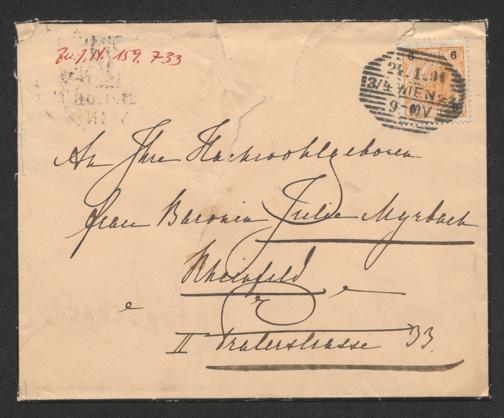 Zu I. N. 159.733
6 6
24.1.01
3/4 WIEN 2/1
9-MV
An Ihre Hochwohlgeboren
Frau Baronin Julie Myrbach
Rheinfeld
II Praterstrasse 33.